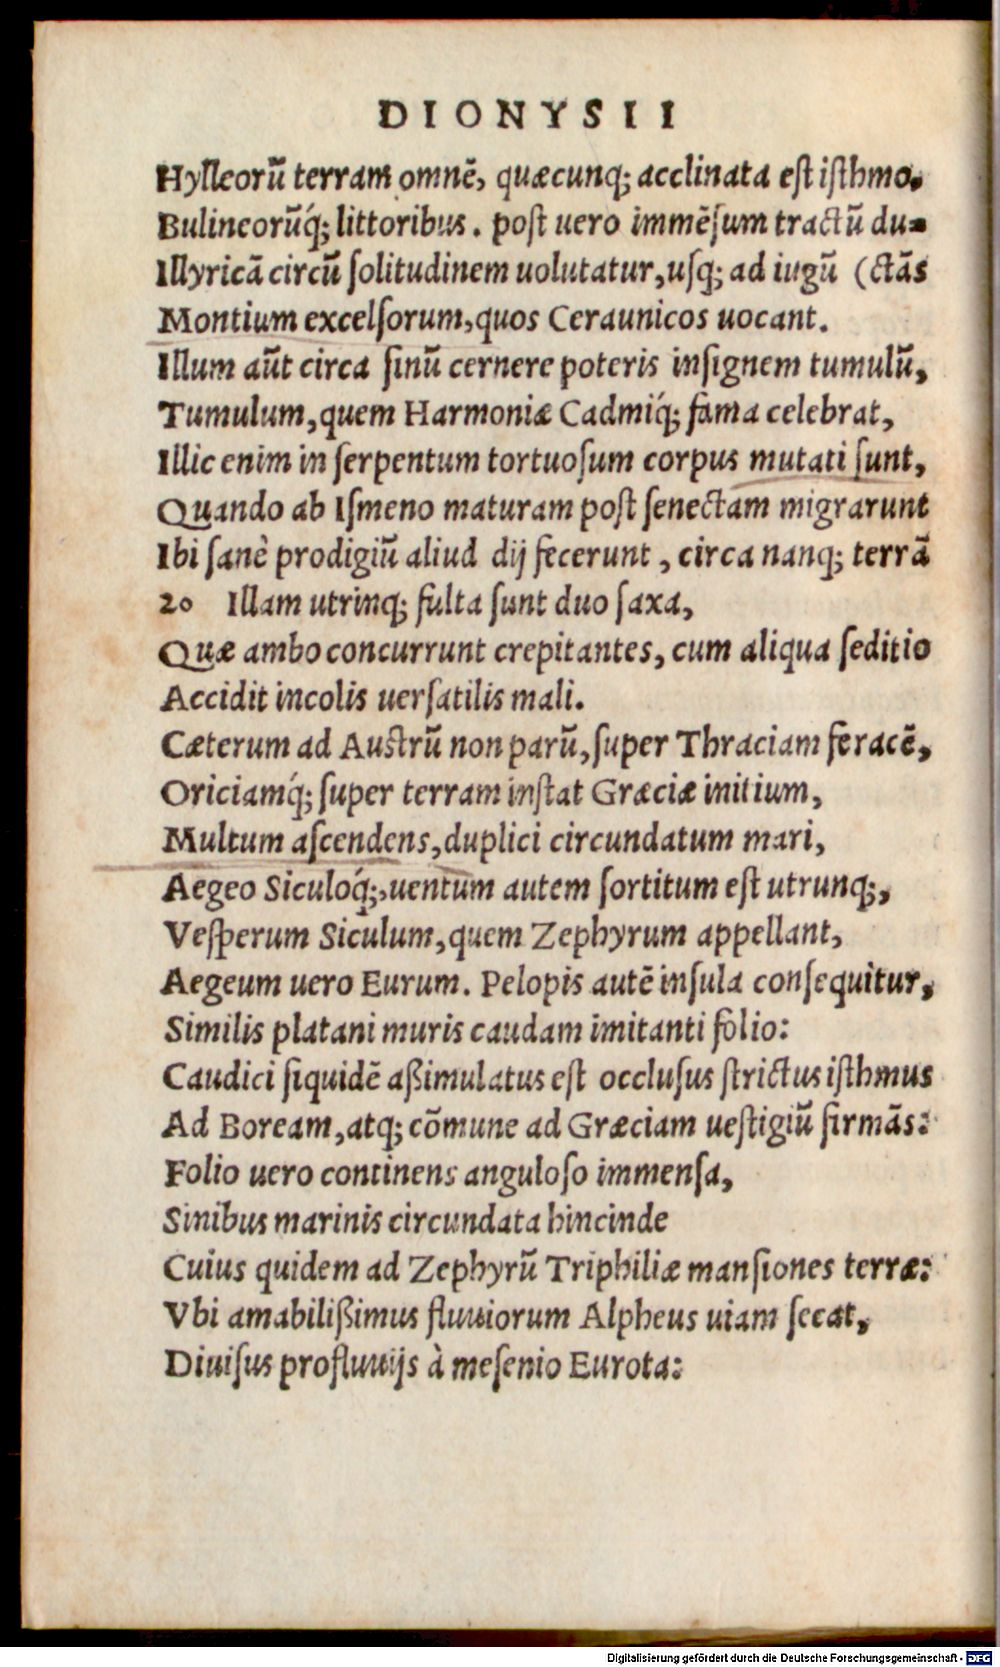 DIONYSII
Hylleorū terram omnē, quæcunq; acclinata est isthmo.
Bulineorūq́; littoribus. post uero immēsum tractū du-
Illyricā circū solitudinem uolutatur, usq; ad iugū (ctās
Montium excelsorum, quos Ceraunicos uocant.
Illum aūt circa sinū cernere poteris insignem tumulū,
Tumulum, quem Harmoniæ Cadmiq́; fama celebrat,
Illic enim in serpentum tortuosum corpus mutati sunt,
Quando ab Ismeno maturam post senectam migrarunt
Ibi sanè prodigiū aliud dij fecerunt, circa nanq; terrā
20 Illam utrinq; fulta sunt duo saxa,
Quæ ambo concurrunt crepitantes, cum aliqua seditio
Accidit incolis uersatilis mali.
Cæterum ad Austrū non parū, super Thraciam feracē,
Oriciamq́; super terram instat Græciæ initium,
Multum ascendens, duplici circundatum mari,
Aegeo Siculoq́;, uentum autem sortitum est utrunq;,
Vesperum Siculum, quem Zephyrum appellant,
Aegeum uero Eurum. Pelopis autē insula consequitur,
Similis platani muris caudam imitanti folio:
Caudici siquidē aßimulatus est occlusus strictus isthmus
Ad Boream, atq; cōmune ad Græciam uestigiū firmās:
Folio uero continens anguloso immensa,
Sinibus marinis circundata hincinde
Cuius quidem ad Zephyrū Triphiliæ mansiones terræ:
Vbi amabilißimus fluuiorum Alpheus uiam secat,
Diuisus profluuijs à mesenio Eurota:
Digitalisierung gefördert durch die Deutsche Forschungsgemeinschaft - DFG